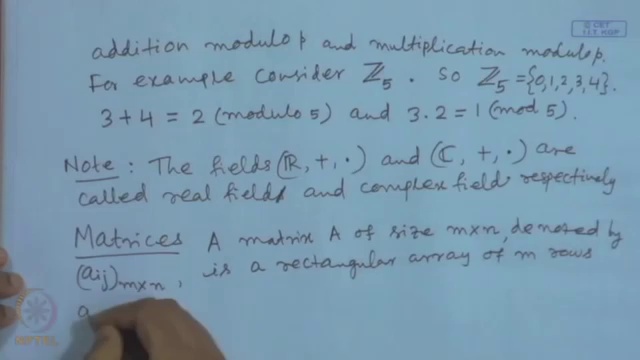 © CET
I.I.T. KGP
addition modulo p and multiplication modulo p.
For example consider ℤ₅ . So ℤ₅ = {0,1,2,3,4}.
3+4 = 2 (modulo 5) and 3.2 = 1 (mod 5).
Note : The fields (ℝ, +, ·) and (ℂ, +, ·) are
called real field and complex field respectively
Matrices A matrix A of size m×n, denoted by
(aij)m×n, is a rectangular array of m rows
a
NPTEL